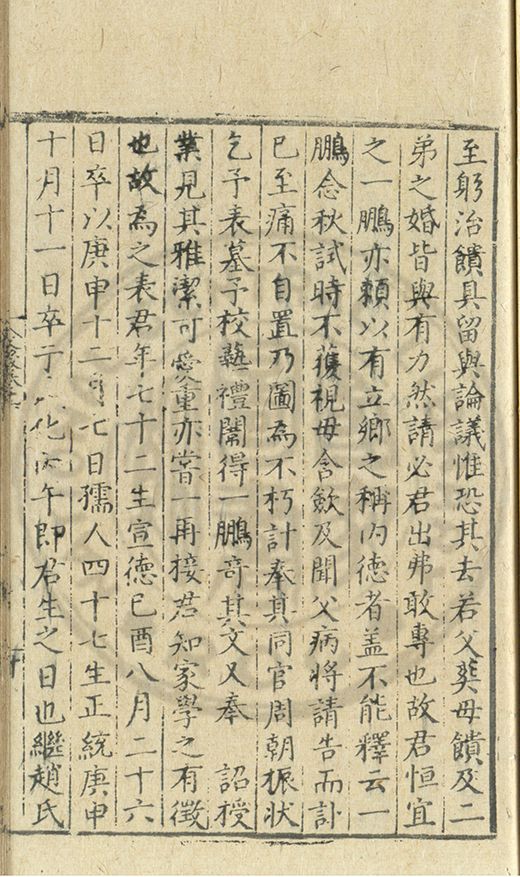 至躬治饋具留與論議惟恐其去若父葬母饋及二
弟之婚皆與有力然請必君出弗敢專也故君恒宜
之一鵬亦頼以有立鄉之稱内德者盖不能釋云一
鵬念秋試時不獲視母含斂及聞父病將請告而訃
已至痛不自置乃圖為不朽計奉其同官周朝振狀
乞予表墓予校藝禮闈得一鵬奇其文又奉 詔授
業見其雅潔可愛重亦嘗一再接君知家學之有徵
也故為之表君年七十二生宣德己酉八月二十六
日卒以庚申十二月七日孺人四十七生正統庚申
十月十一日卒于 化丙午即君生之日也繼趙氏